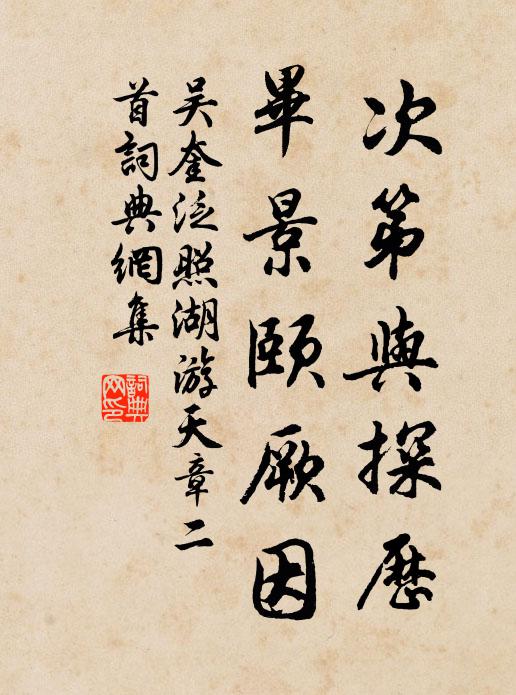 次第與探歷
畢景頤厥因
吴奎泛照湖游天章二
首詞典網集
詞典网印